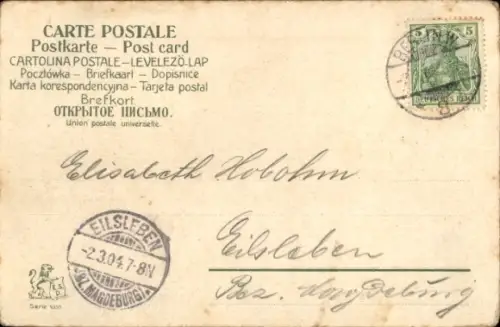 CARTE POSTALE
Postkarte – Post card
CARTOLINA POSTALE – LEVELEZŐ-LAP
Pocztówka – Briefkaart – Dopisnice
Karta korespondencyjna – Tarjeta postal
Brefkort
ОТКРЫТОЕ ПИСЬМО.
Union postale universelle.
5 5
DEUTSCHES REICH
Elisabeth Hobohm
EILSLEBEN
-2.3.04.7-8N
(BZ. MAGDEBURG)
Eilsleben
Bez. Magdeburg
Serie